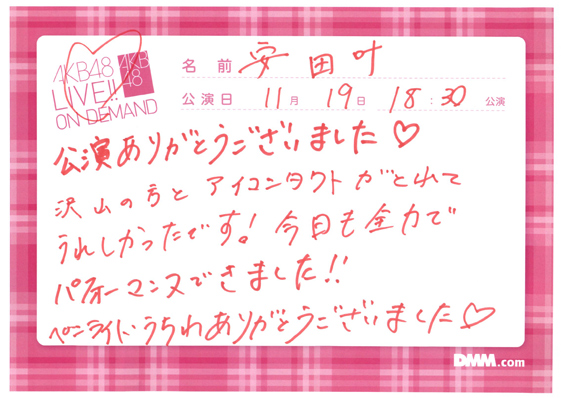 AKB48
LIVE!!
ON DEMAND
AKB
48
名前 安田叶
公演日 11月 19日 18:30 公演
公演ありがとうございました♡
沢山の方とアイコンタクトがとれて
うれしかったです!今日も全力で
パフォーマンスできました!!
ペンライト・うちわありがとうございました♡
DMM.com